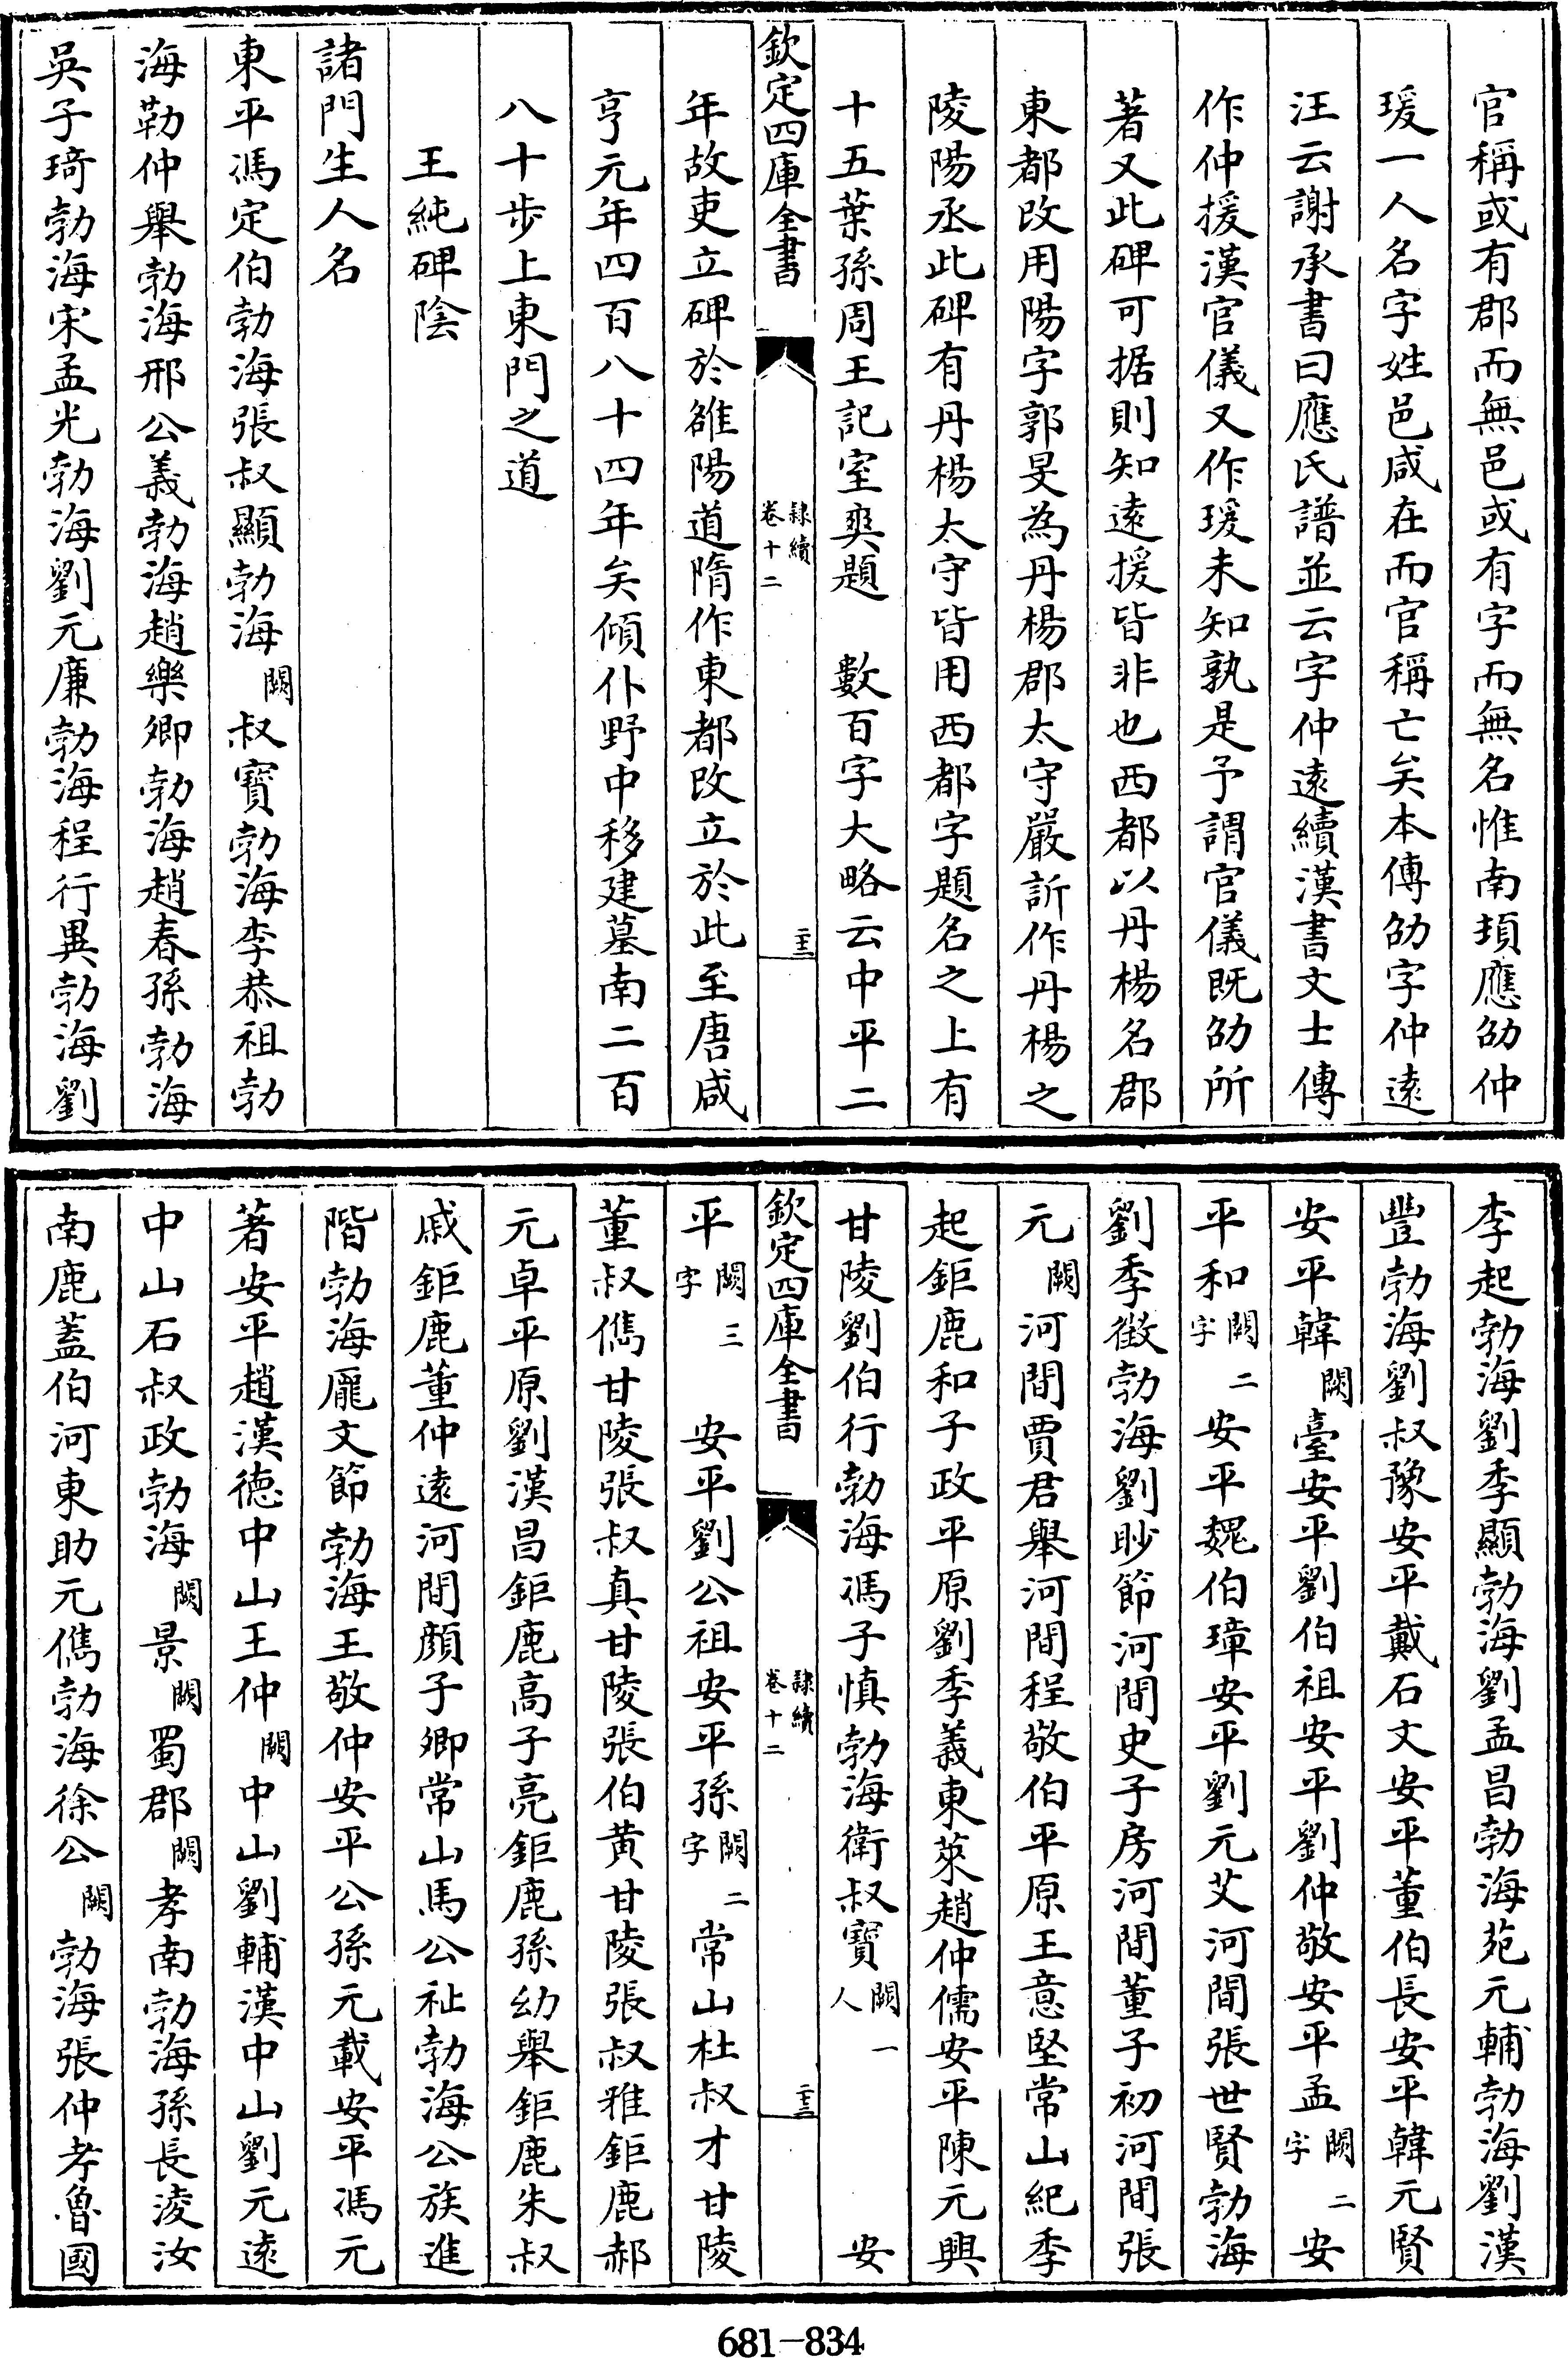 官稱或有郡而無邑或有字而無名惟南頓應劭仲
瑗一人名字姓邑咸在而官稱亡矣本傳劭字仲遠
汪云謝承書曰應氏譜並云字仲遠續漢書文士傳
作仲援漢官儀又作瑗未知孰是予謂官儀既劭所
著又此碑可据則知遠援皆非也西都以丹楊名郡
東都改用陽字郭旻為丹楊郡太守嚴訢作丹楊之
陵陽丞此碑有丹楊太守皆用西都字題名之上有
十五葉孫周王記室奭題 數百字大略云中平二
欽定四庫全書 隸續 卷十二 二十三
年故吏立碑於雒陽道隋作東都改立於此至唐咸
亨元年四百八十四年矣傾仆野中移建墓南二百
八十步上東門之道
王純碑陰
諸門生人名
東平馮定伯勃海張叔顯勃海闕叔寶勃海李恭祖勃
海勒仲舉勃海邢公義勃海趙樂卿勃海趙春孫勃海
吳子琦勃海宋孟光勃海劉元廉勃海程行異勃海劉
李起勃海劉季顯勃海劉孟昌勃海苑元輔勃海劉漢
豐勃海劉叔豫安平戴石文安平董伯長安平韓元賢
安平韓闕臺安平劉伯祖安平劉仲敬安平孟闕二字安
平和闕二字安平魏伯璋安平劉元艾河間張世賢勃海
劉季徵勃海劉眇節河間史子房河間董子初河間張
元闕河間賈君舉河間程敬伯平原王意堅常山紀季
起鉅鹿和子政平原劉季義東萊趙仲儒安平陳元興
甘陵劉伯行勃海馮子慎勃海衛叔寶闕一人 安
欽定四庫全書 隸續 卷十二 二十三
平闕三字 安平劉公祖安平孫闕二字常山杜叔才甘陵
董叔儁甘陵張叔真甘陵張伯黄甘陵張叔雅鉅鹿郝
元卓平原劉漢昌鉅鹿高子亮鉅鹿孫幼舉鉅鹿朱叔
戚鉅鹿董仲遠河間顏子卿常山馬公祉勃海公族進
階勃海龎文節勃海王敬仲安平公孫元載安平馮元
著安平趙漢德中山王仲闕中山劉輔漢中山劉元遠
中山石叔政勃海闕景闕蜀郡闕孝南勃海孫長淩汝
南鹿蓋伯河東助元儁勃海徐公闕勃海張仲孝魯國
681-834